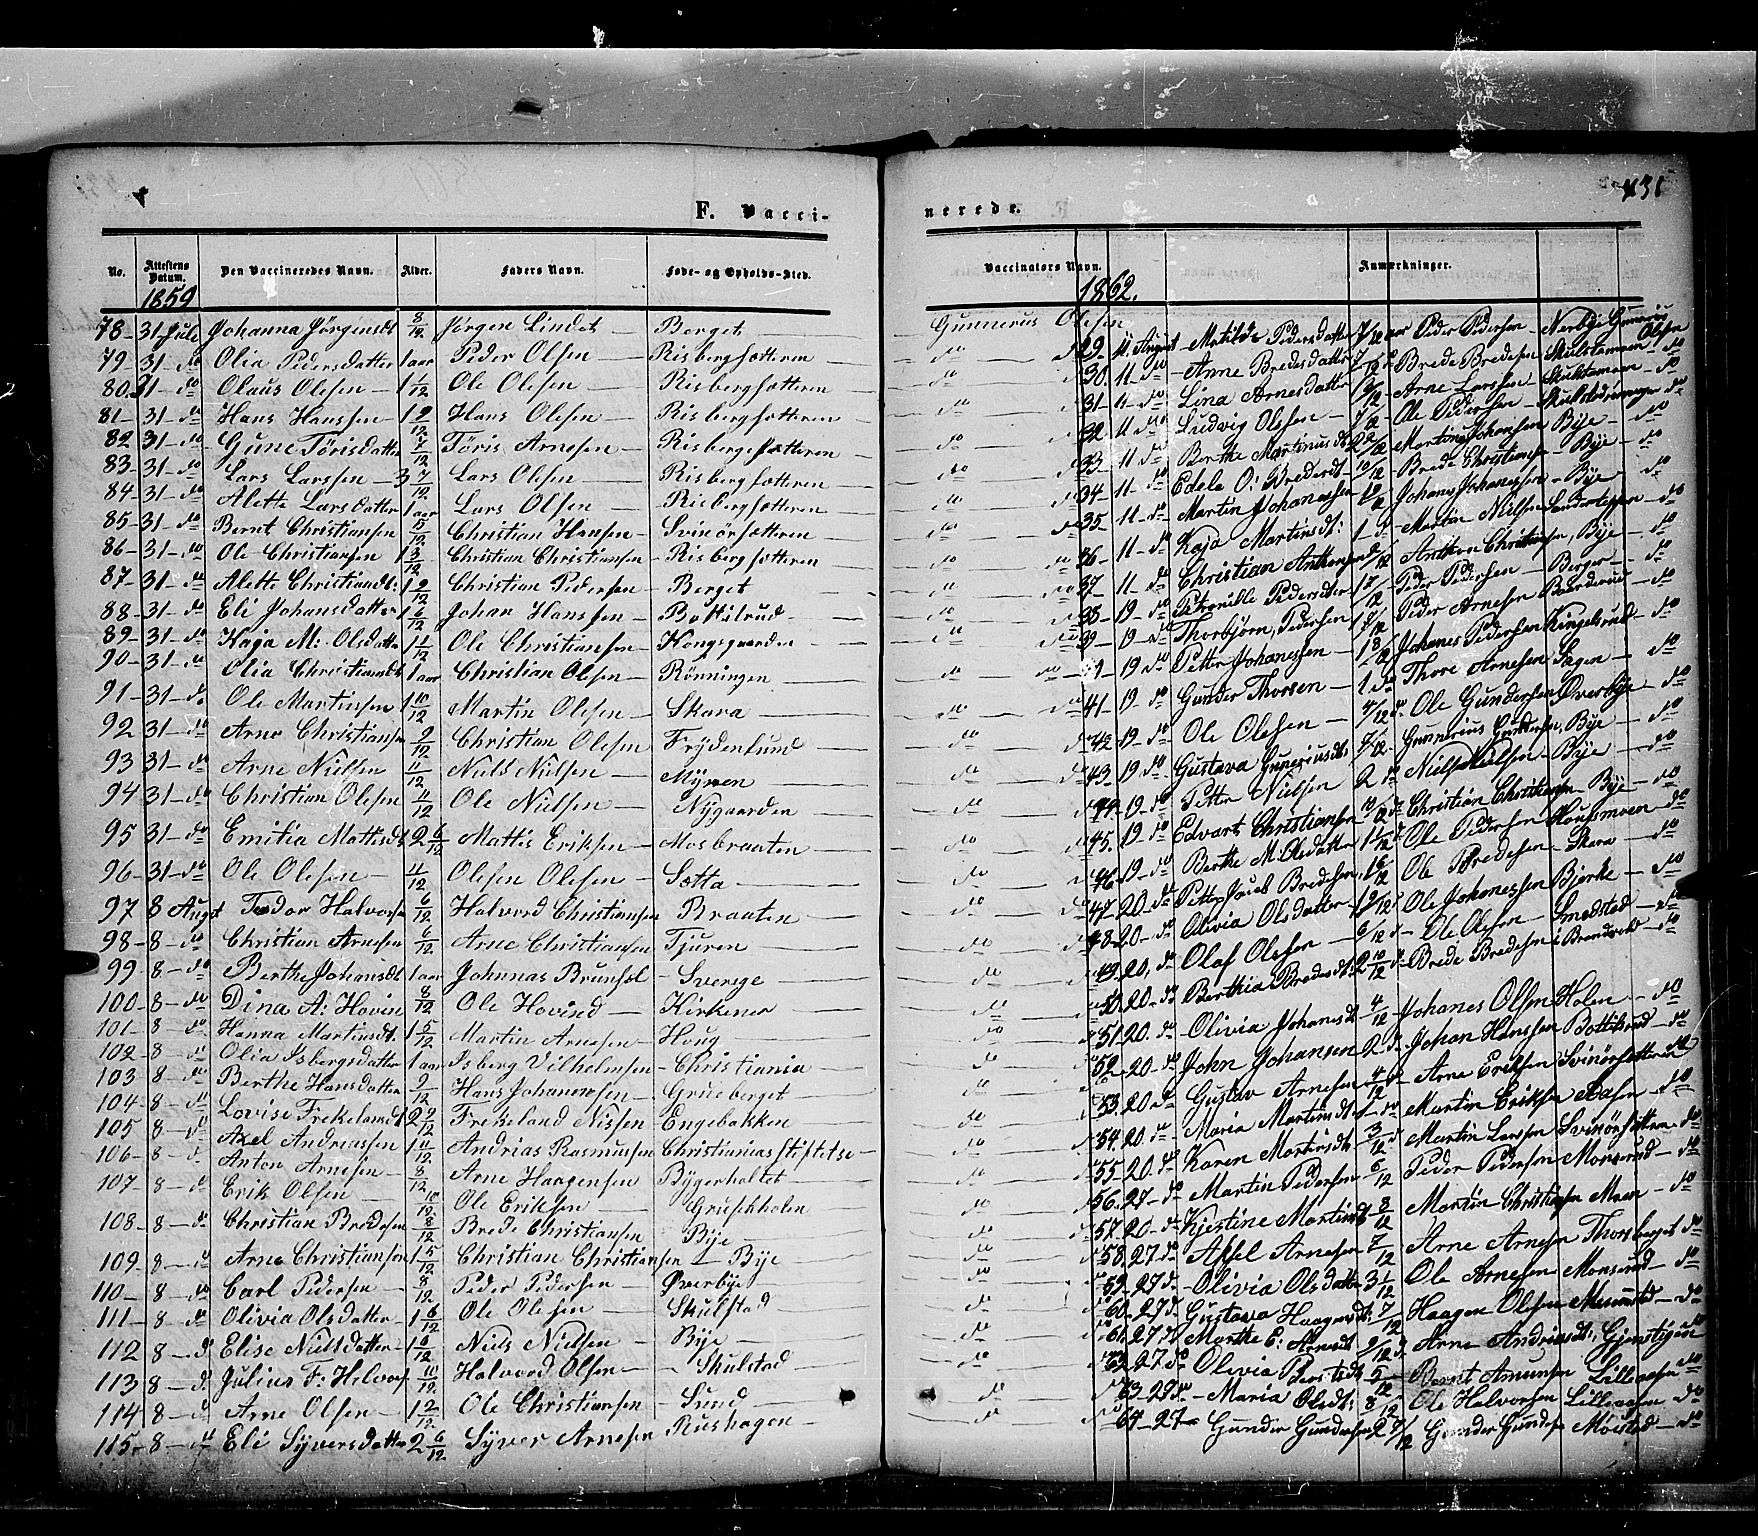 431
F. Vacci-
nerede.
No. Attestens Datum. Den Vaccineredes Navn. Alder. Faders Navn. Føde- og Opholds-Sted.
Vaccinators Navn. Anmærkninger.
1859
1862.
78 - 31 Juli Johanna Jørgensdt 8/12 Jørgen Lindet - Berget - Gunnerus Olsen
79 31 - do Olia Pedersdatter 1 aar Peder Olsen - Risbergsætteren do
80 31 - do Olaus Olesen - 1 1/12 Ole Olesen - Risbergsætteren do
81 - 31 - do Hans Hanssen - 1 9/12 Hans Olsen - Risbergsætteren do
82 31 - do Gune Törisdatter 7/12 Töris Arnesen - Risbergsetteren do
83 - 31 - do Lars Larssen - 3 7/12 Lars Olsen - Risbergsætteren do
84 - 31 - do Alette Larsdatter 1 aar Lars Olsen - Risbergsætteren do
85 - 31 - do Bernt Christiansen 5/12 Christian Hansen - Svinörsætteren do
86 - 31 - do Ole Christiansen 1 3/12 Christian Christiansen - Risbergsætteren do
87 - 31 - do Alette Christiansdt: 1 9/12 Christian Pedersen - Berget do
88 - 31 - do Eli Johansdatter 1 6/12 Johan Hanssen - Bottilrud - do
89 - 31 - do Kaja M: Olsdatter 1 1/12 Ole Christiansen - Kongsgaarden do
90 - 31 - do Olia Christiansdt 1 aar Christian Olsen - Rönningen do
91 - 31 - do Ole Martinsen 1 10/12 Martin Olesen - Skara do
92 31 - do Arne Christiansen 9/12 Christian Olesen Frydenlund do
93 31 - do Arne Nielsen 11/12 Niels Nielsen - Myren do
94 31 - do Christian Olesen 11/12 Ole Nielsen - Nygaarden do
95 31 - do Emilia Mattisdt 2 6/12 Mattis Eriksen - Mosbraaten do
96 - 31 - do Ole Olesen - 11/12 Olesen Olesen - Sætta do
97 8 Augst Tedor Halvorsen 6/12 Halvord Christiansen Braaten do
98 - 8 - do Christian Arnesen 6/12 Arne Christiansen - Tjuren do
99 8 - do Berthe Johansdt 1 aar Johnnas Brunsol - Sverige do
100 - 8 - do Dina A: Hovin 8/12 Ole Hovind - Kirkener do
101 - 8 do Hanna Martinsdt: 1 5/12 Martin Arnesen - Houg do
102 - 8 - do Olia Isbergsdatter 1 aar Isberg Vilhelmsen - Christiania do
103 8 - do Berthe Hansdatter 9/12 Hans Johannesen - Grueberget do
104 - 8 - do Lovise Frekeland 2 9/12 Frekeland Nissen - Engebakken do
105 8 - do Axel Andreassen 1 11/12 Andrias Rasmussen Christianiastiftetse - do
106 - 8 - do Anton Arnesen - 8/12 Arne Haagensen Bygerholtet do
107 - 8 - do Erik Olsen - 10/12 Ole Eriksen - Grusekholen do
108 - 8 - do Christian Bredesen 8/12 Brede Christiansen Bye do
109 - 8 - do Arne Christiansen 1 5/12 Christian Christiansen - Bye do
110 - 8 do Carl Pedersen - 8/12 Peder Pedersen Øverbye do
111 - 8 - do Olivia Olsdatter - 1 6/12 Ole Olesen - Skulstad do
112 8 - do Elise Nielsdatter - 1 6/12 Niels Nielsen - Bye do
113 8 - do Julius F: Halvors 11/12 Halvord Olsen - Skulstad do
114 8 - do Arne Olsen - 1 2/12 Ole Christiansen - Sund do
115 - 8 - do Eli Syversdatter 2 6/12 Syver Arnesen Rushagen
29 11. August Matilde Pedersdatter 7/12 aar Peder Pedersen - Nerbye Gunnerius Olsen
30. 11 - do Arne Bredesdatter 7/12 Brede Bredesen Skulstamoen - do
31 - 11 - do Lina Arnesdatter 9/12 - Arne Larssen - Skulstamoen - do
32. 11 do Ludvig Olssen - 7/12 Ole Pedersen - Skulstad do
33 - 11 - do Berthe Martinusdt 2 2/12 Martinus Johansen Bye - do
34. 11 - do Edele O: Brededt 10/12 - Brede Christiansen - Bye - do
35. 11 - do Martin Johanessen Johans Johanessen - Bye - do
36 - 11 - do Kaja Martinsdt: 1 - do Martin Nielsen do
37 - 11 - do Christian Anthonsen Anthon Christiansen, Bye - do
38 - 19 - do Petronille Pedersdtr Peder Pedersen - Berger - do
39 - 19 - do Thorbjørn Pedersen Peder Arnesen do
19 do Petter Johanessen - 1 8/12 Johanes Pedersen Kingelsrud - do
41 - 19 - do Gunder Thorsen - 1 do Thore Arnesen Hagen - do
42 - 19 - do Ole Olesen - 4/12 do Ole Gundersen Øverbye - do
43 19 do Gustava Gunneriusdt 7/12 Gunnerius Gundersen, Bye - do
44 - 19 - do Petter Nielsen 2 do Niels Nielsen - Bye - do
45. 19 - do Edvart Christiansen 10/12 do Christian Christiansen Bye - do
46 - 19 - do Berthe M: Olsdatter 1 1/12 Ole Pedersen Hougsmoen - do
47 - 20 - do Petter Jacob Bredesen. 1 6/12 Ole Bredesen - Skara - do
48 - 20 - do Olivia Olsdatter - 1 9/12 Ole Johanessen Bjerke - do
49. 20. do Olaf Olssen - 6/12 do - Ole Olesen - Smedstad - do
50. 20 - do Berthia Bredesdt: 2 10/12 do - Brede Bredesen i Brændvold - do
51. 20 - do Olivia Johanesdt 4/12 Johanes Olsen Holen - do
52 - 20 - do John Johansen 2 do Johan Hanssen Bottilsrud - do
53. 20 do Gustav Arnesen 4/12 do Arne Eriksen Svinörsætteren do
54. 20. do Maria Martinsdt 1 do Martin Eriksen Aasen do
55 - 20 do Karen Martinsdt 3/12 do Martin Larssen Svinörsættren - do
56. 27 - do Martin Pedersen 6/12 Peder Pedersen Monsrud - do
57. 20 - do Kjestine Martinsdt 8/12 Martin Christiansen Moen - do
58. 27 do Axsel Arnesen 7/12 Arne Arnesen Thorsberget do
59 - 27 do - Olivia Olsdatter 3 1/12 Ole Arnesen Monsrud - do
60 - 27 do Gustava Haagensdt: 7/12 Haagen Olsen do
61. 27 do Marthe E: Arnesdt 9/12 do Arne Andriasdt: do
62 27 do Olivia Berntsdt: 5/12 Bernt Amunsen Lilleaasen do
63 - 27 do - Maria Olsdt: 8/12 Ole Halvorsen Lilleaasen - do
64 - 27 - Gunder Gundersen 2 7/12 Gunder Gundersen Moestad - do